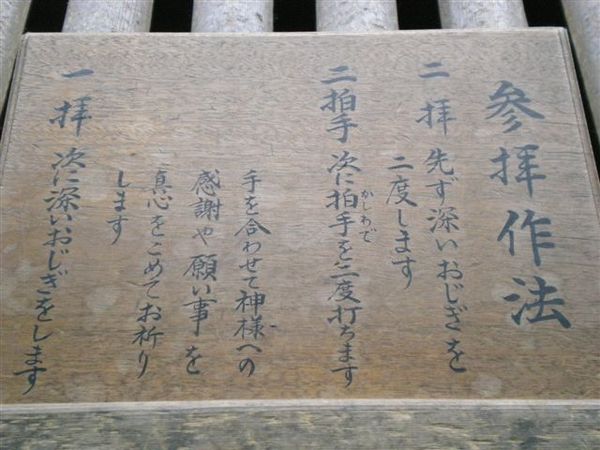 参拝作法
二拝 先ず深いおじぎを
二度します
二拍手 次に拍手を二度打ちます
かしわで
手を合わせて神様への
感謝や願い事を
真心をこめてお祈り
します
一拝 次に深いおじぎをします